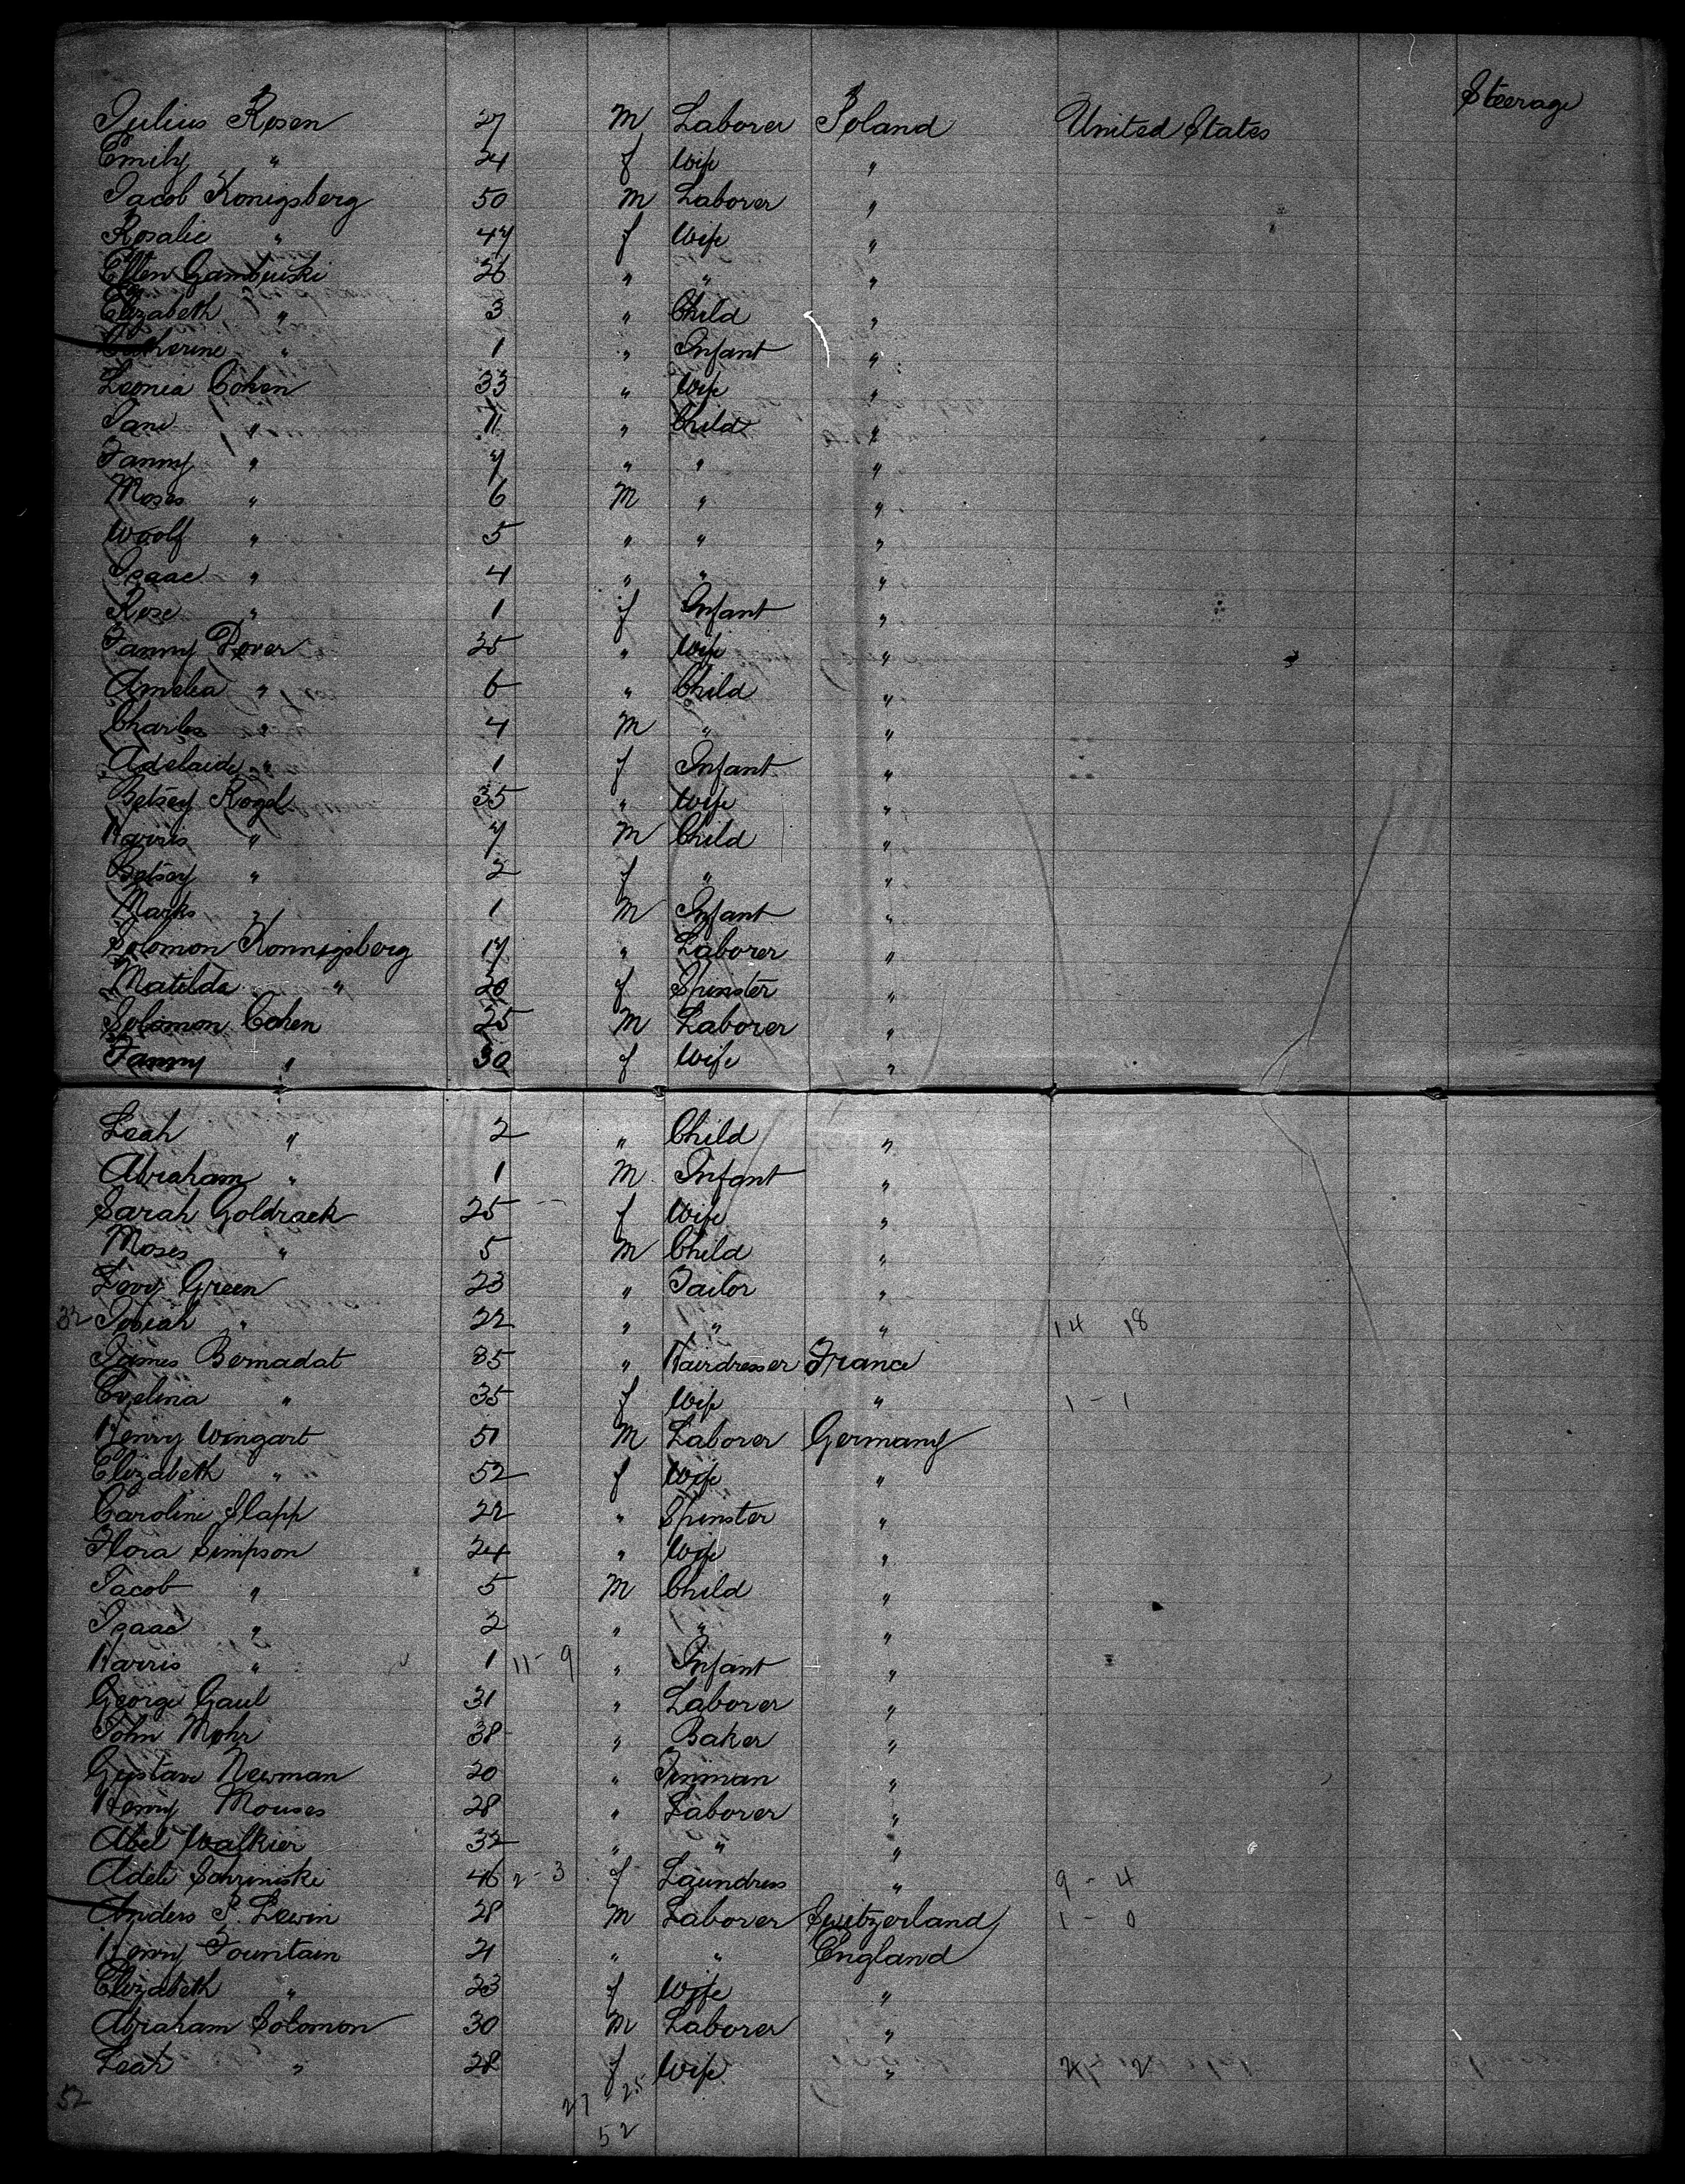 Steerage
Julius Rosen 27 M Laborer Poland United States
Emily " 24 f Wife "
Jacob Konigsberg 50 M Laborer "
Rosalie " 47 f Wife "
Ellen Gambuiski 26 " " "
Elizabeth " 3 " Child "
Catherine " 1 " Infant "
Leonia Cohen 33 " Wife "
Jane " 11 " Child "
Fanny " 7 " " "
Moses " 6 M " "
Woolf " 5 " " "
Isaac " 4 " " "
Rose " 1 f Infant "
Fanny Dover 25 " Wife "
Amelia " 6 " Child "
Charles " 4 M " "
Adelaide " 1 f Infant "
Betsey Rogd 35 " Wife "
Harris " 7 M Child "
Betsey " 2 f " "
Marks " 1 M Infant "
Solomon Konnigsberg 17 " Laborer "
Matilda " 20 f Spinster "
Solomon Cohen 25 M Laborer "
Fanny " 30 f Wife "
Leah " 2 " Child "
Abraham " 1 M Infant "
Sarah Goldrack 25 f Wife "
Moses " 5 M Child "
Levy Green 23 " Tailor "
32 Josiah " 22 " " " 14 18
James Bernadat 35 " Hairdresser France
Evelina " 35 f Wife " 1 - 1
Henry Wingart 51 M Laborer Germany
Elizabeth " 52 f Wife "
Caroline Slapp 22 " Spinster "
Flora Simpson 24 " Wife "
Jacob " 5 M Child "
Isaac " 2 " " "
Harris " 1 11 - 9 " Infant "
George Gaul 31 " Laborer "
John Mohr 38 " Baker "
Gustave Newman 20 " Tinman "
Henry Mouses 28 " Laborer "
Abel Walkier 32 " " "
Adele Sahriniski 46 2 - 3 f Laundress " 9 - 4
Anders P. Lewin 28 M Laborer Switzerland 1 - 0
Henry Fountain 21 " " England
Elizabeth " 23 f Wife "
Abraham Solomon 30 M Laborer "
Leah " 28 f Wife " 2 2
52 27 25
52